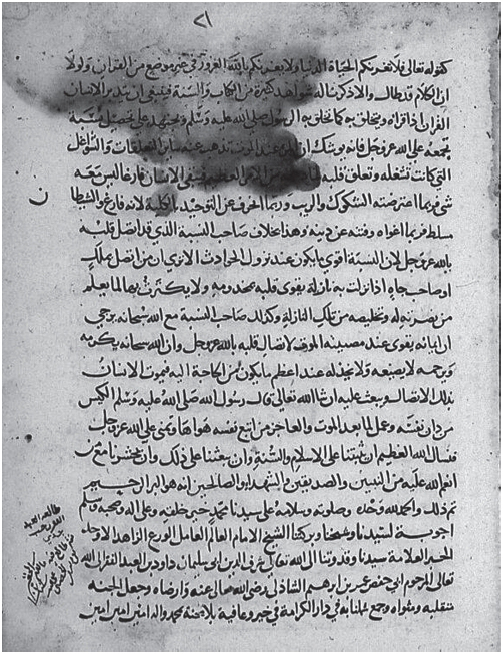 ٢١
كقوله تعالى فلا تغرنكم الحياة الدنيا ولا يغرنكم بالله الغرور في غير موضع من القران ولولا
ان الكلام قد طال والا ذكرنا له شواهد كثيرة من الكتاب والسنة فينبغي ان يتدبر الانسان
القران اذا قراه ويتخلق به كما تخلق به الرسول صلى الله عليه وسلم ويجتهد على تحصيل
تجمعه على الله عز وجل فانه يوشك ان المرء عند الموت تذهب عنه ساير التعلقات والشواغل
التي كانت تشغله وتعلق قلبه من الامر العظيم فيبقى الانسان فارغا ليس معه
شي فربما اعترضته الشكوك والريب وربما انحرف عن التوحيد بالكلية لانه فارغ والشيطان
مسلط فربما اغواه وفتنه عن دينه وهذا بخلاف صاحب النسبة الذي قد اتصل قلبه
بالله عز وجل لان النسبة اقوى ما يكون عند نزول الحوادث الا ترى ان من اتصل بملك
او صاحب جاه اذا نزلت به نازلة يقوى قلبه بمخدومه ولا يكترث بها لما يعلم
من نصرته له وتخليصه من تلك النازلة وكذلك صاحب النسبة مع الله سبحانه يرجى
ان ايمانه يقوى عند مصيبته الموت لاتصال قلبه بالله عز وجل وان الله سبحانه يكرمه
ويرحمه لا يضيعه ولا يخذله عند اعظم ما يكون من الحاجة اليه فيموت الانسان
بذلك الاتصال ويبعث عليه ان شا الله تعالى قال رسول الله صلى الله عليه وسلم الكيس
من دان نفسه وعمل لما بعد الموت والعاجز من اتبع نفسه هواها وتمنى على الله عز وجل
فنسال الله العظيم ان يثبتنا على الاسلام والسنة وان يبعثنا على ذلك وان يحشرنا مع من
انعم الله عليه من النبيين والصديقين والشهداء والصالحين انه هو البر الرحيم
تم ذلك والحمد لله وحده وصلوته وسلامه على سيدنا محمد خير خلقه وعلى اله وصحبه وسلم
اجوبة لسيدنا وشيخنا وبركتنا الشيخ الامام العالم العامل الورع الزاهد الاوحد
الحبر العلامة سيدنا وقدوتنا الى الله تعالى شرف الدين ابي سليمان داود بن العبد الفقير الى الله
تعالى المرحوم ابي حفص عمر بن ابرهيم الشاذلي رضي الله تعالى عنه وارضاه وجعل الجنة
متقلبه ومثواه وجمع بيننا به في دار الكرامة في خير وعافية بلا محنة محمد واله امين امين امين